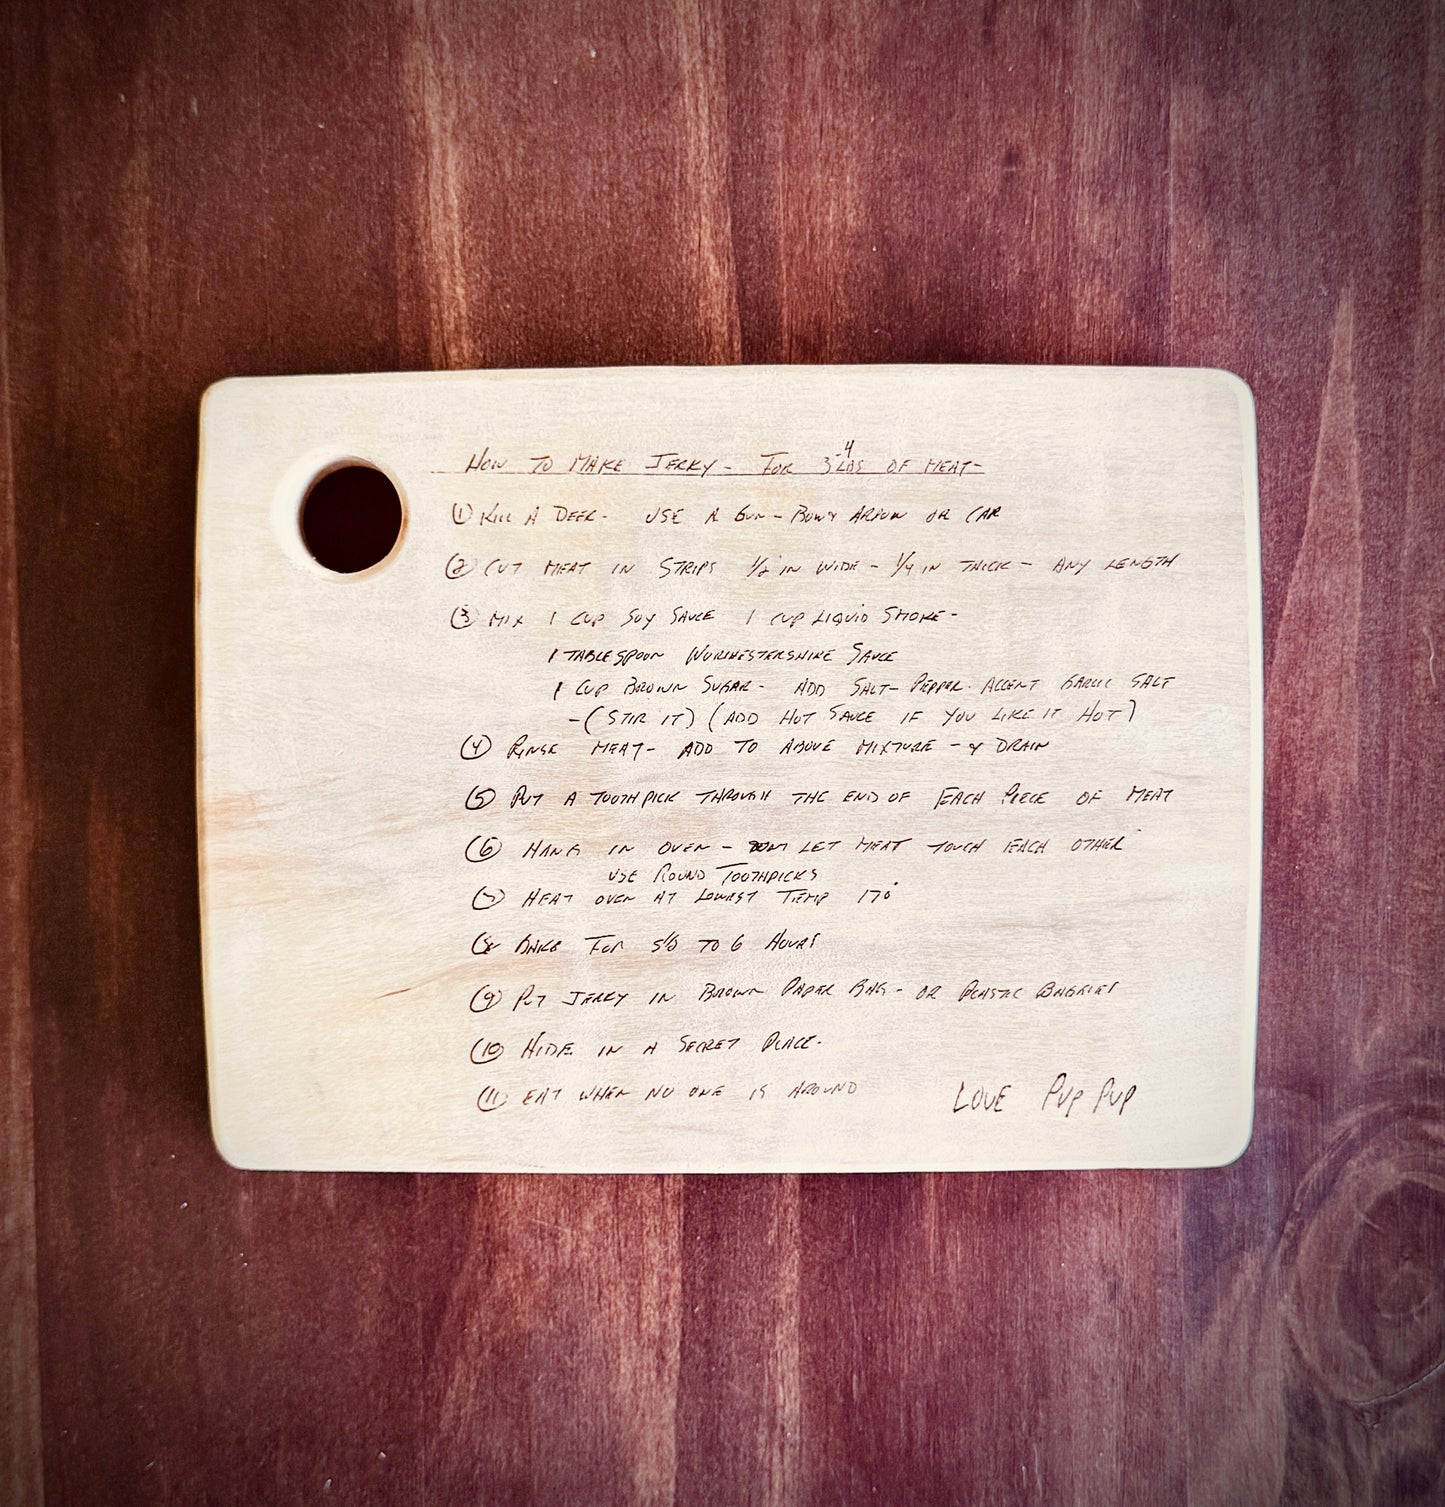 HOW TO MAKE JERKY - FOR 3-4 LBS OF MEAT-
① KILL A DEER - USE A GUN - BOW & ARROW OR CAR
② CUT MEAT IN STRIPS 1/2 IN WIDE - 1/4 IN THICK - ANY LENGTH
③ MIX 1 CUP SOY SAUCE 1 CUP LIQUID SMOKE -
1 TABLESPOON WURHESTERSHIRE SAUCE
1 CUP BROWN SUGAR - ADD SALT - PEPPER - ACCENT GARLIC SALT
- (STIR IT) (ADD HOT SAUCE IF YOU LIKE IT HOT)
④ RINSE MEAT - ADD TO ABOVE MIXTURE - & DRAIN
⑤ PUT A TOOTHPICK THROUGH THE END OF EACH PIECE OF MEAT
⑥ HANG IN OVEN - DONT LET MEAT TOUCH EACH OTHER
USE ROUND TOOTHPICKS
⑦ HEAT OVEN AT LOWEST TEMP 170°
⑧ BAKE FOR TO 6 HOURS
⑨ PUT JERKY IN BROWN PAPER BAG - OR PLASTIC BAGGIES
⑩ HIDE IN A SECRET PLACE.
⑪ EAT WHEN NO ONE IS AROUND
LOVE PUP PUP